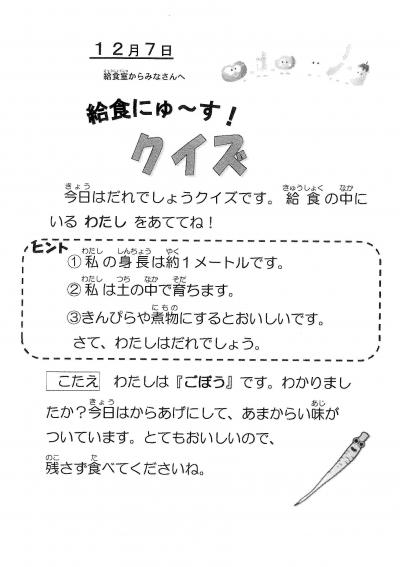 12月7日
給食室からみなさんへ
給食にゅ～す!
クイズ
今日はだれでしょうクイズです。給食の中に
いる わたし をあててね!
ヒント
①私の身長は約1メートルです。
②私は土の中で育ちます。
③きんぴらや煮物にするとおいしいです。
さて、わたしはだれでしょう。
こたえ わたしは『ごぼう』です。わかりまし
たか?今日はからあげにして、あまからい味が
ついています。とてもおいしいので、
残さず食べてくださいね。